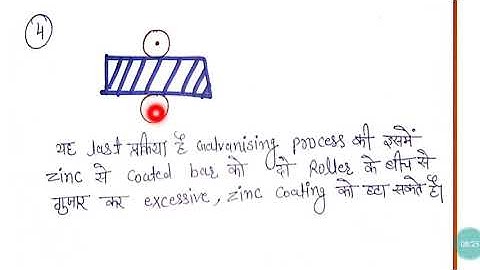 4
यह last प्रक्रिया है Galvanising process की इसमें
zinc से coated bar को दो Roller के बीच से
गुजर कर excessive, zinc coating को हटा सकते है।